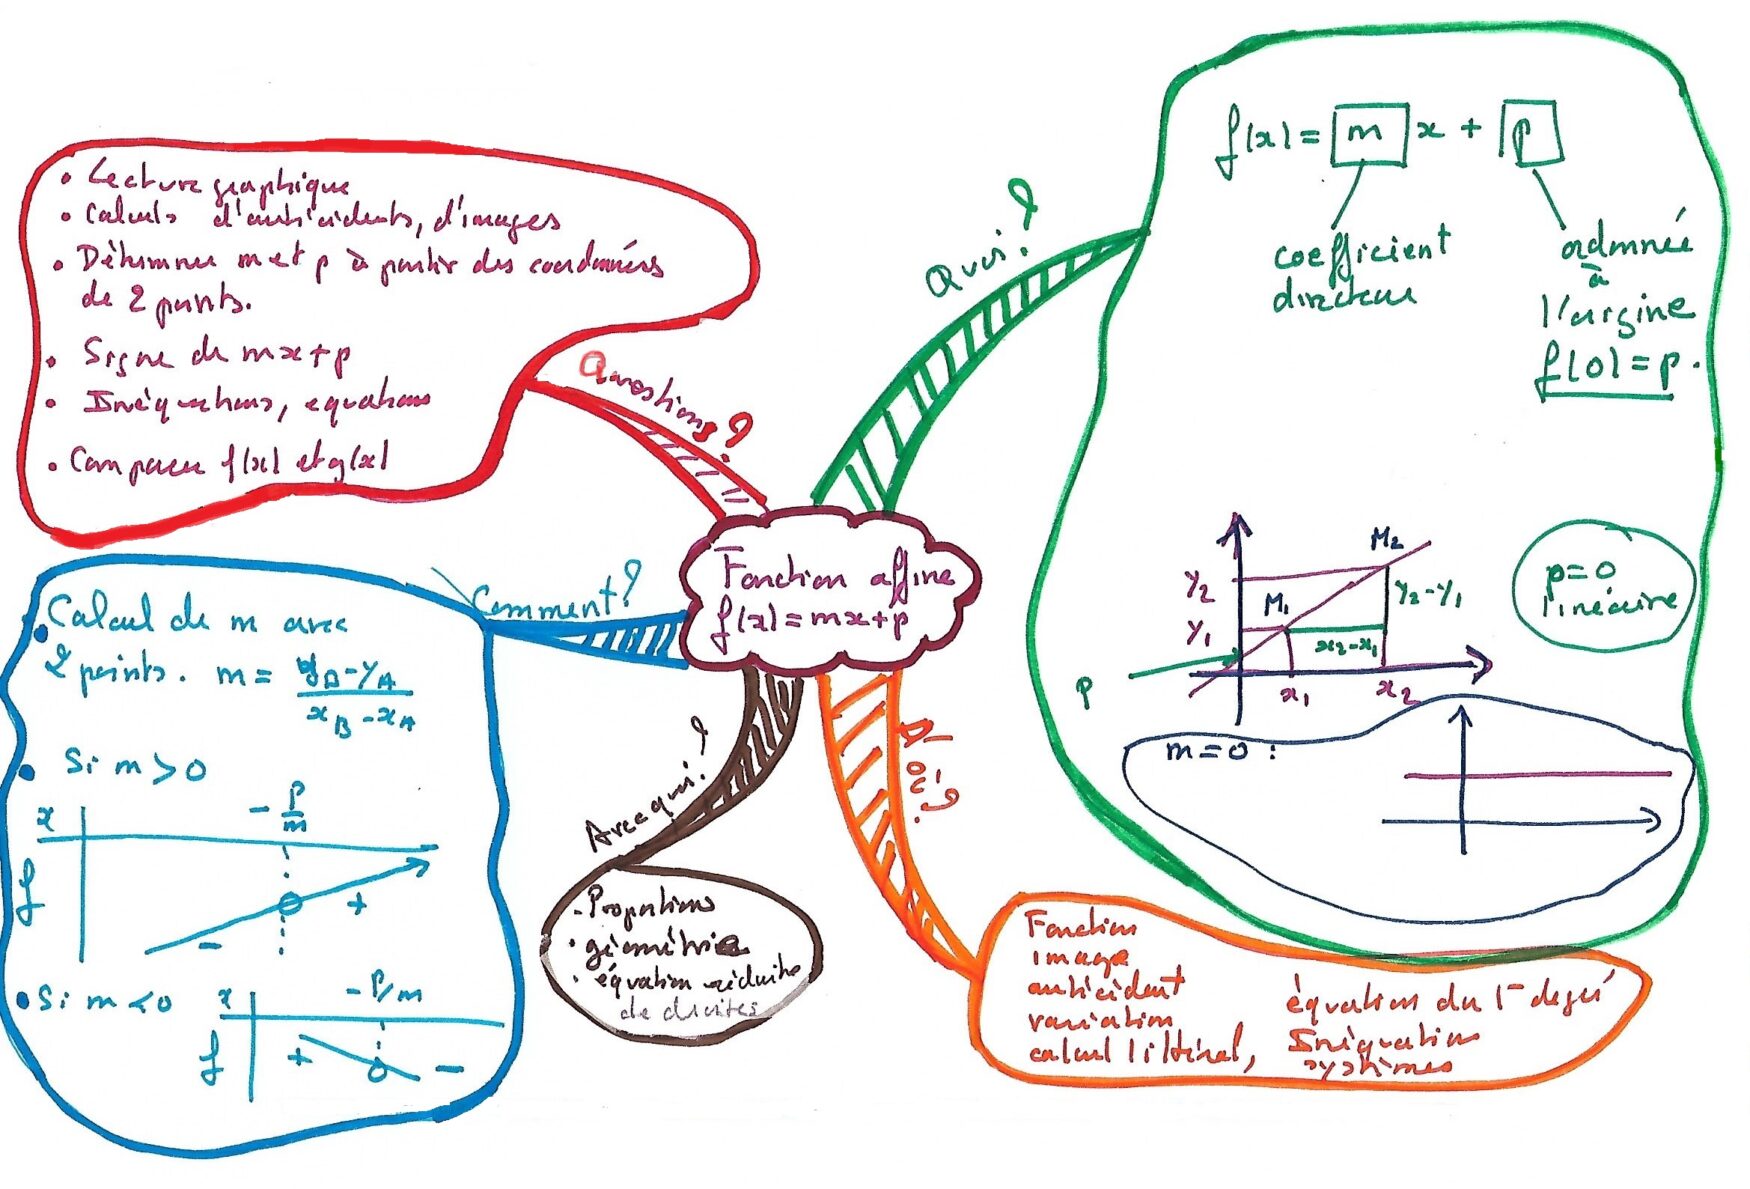 Fonction affine
f(x) = mx+p
Quoi?
f(x) = m x + p
coefficient
directeur
ordonnée
à
l'origine
f(0) = p.
M2
y2
y2-y1
M1
y1
x2-x1
p
x1
x2
p=0
linéaire
m=0 :
Questions?
• Lecture graphique
• Calculs d'antécédents, d'images
• Déterminer m et p à partir des coordonnées
de 2 points.
• Signe de mx+p
• Inéquations, equations
• Comparer f(x) et g(x)
Comment?
• Calcul de m avec
2 points. m = yB-yA / xB-xA
• Si m > 0
x
- p/m
f
- +
• Si m < 0
x
-P/m
f
+ -
Avec qui?
- Proportions
• géométrie
• équation réduite
de droites
D'où?
Fonction
image
antécédent
variation
calcul littéral,
équation du 1er degré
Inéquation
systèmes